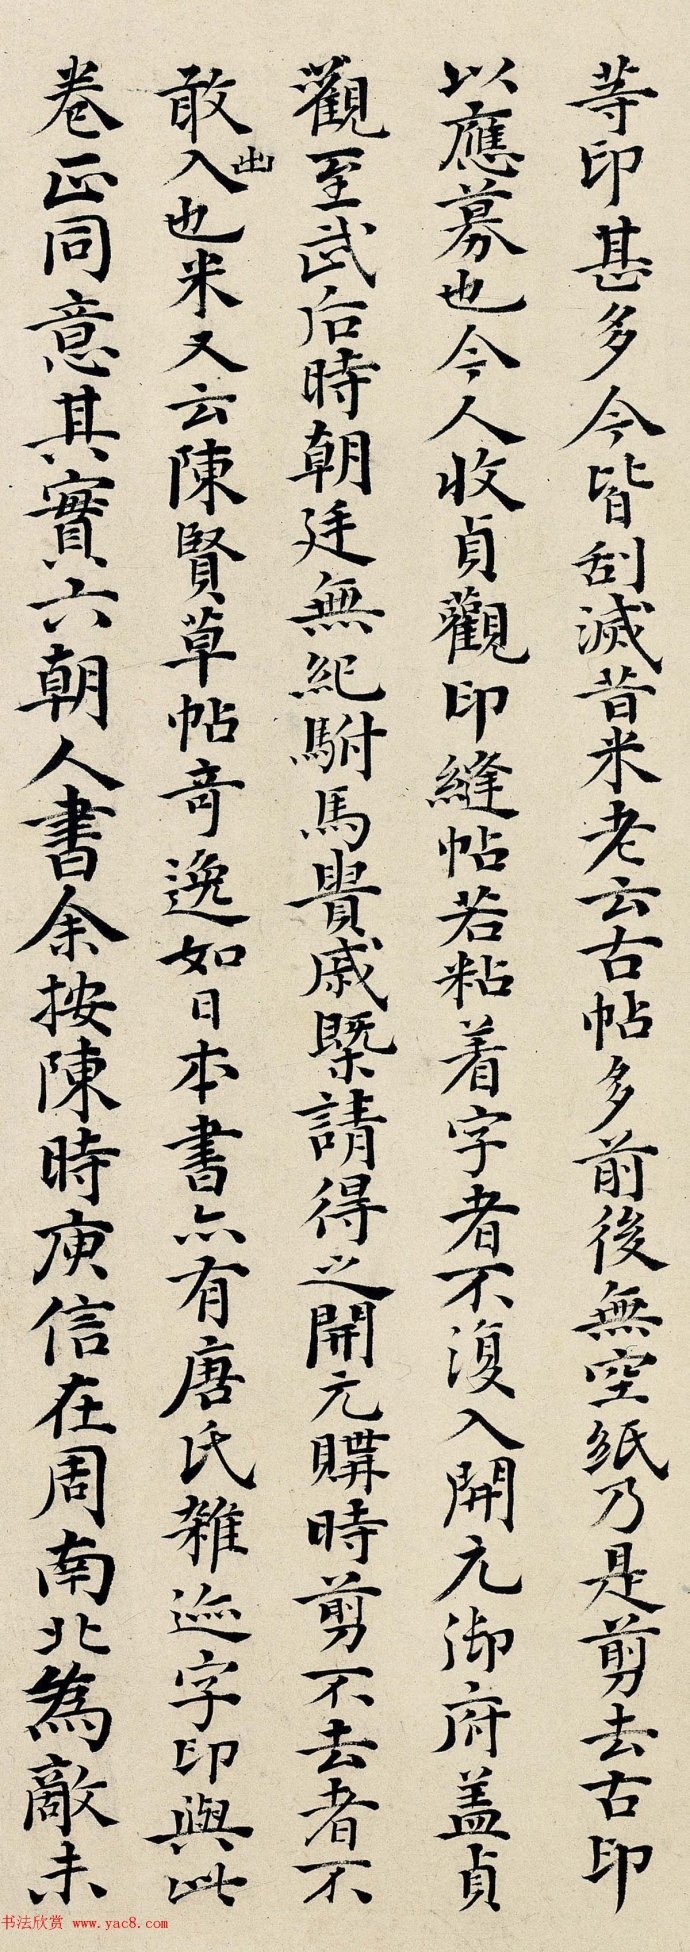 等印甚多今皆刮滅昔米老云古帖多前後無空紙乃是剪去古印
以應募也今人收貞觀印縫帖若粘着字者不復入開元御府盖貞
觀至武后時朝廷無紀駙馬貴戚槩請得之開元購時剪不去者不
敢入也米又云陳賢草帖奇逸如日本書亦有唐氏雜迹字印與此
出
卷正同意其實六朝人書余按陳時庾信在周南北為敵未
书法欣赏 www.yac8.com